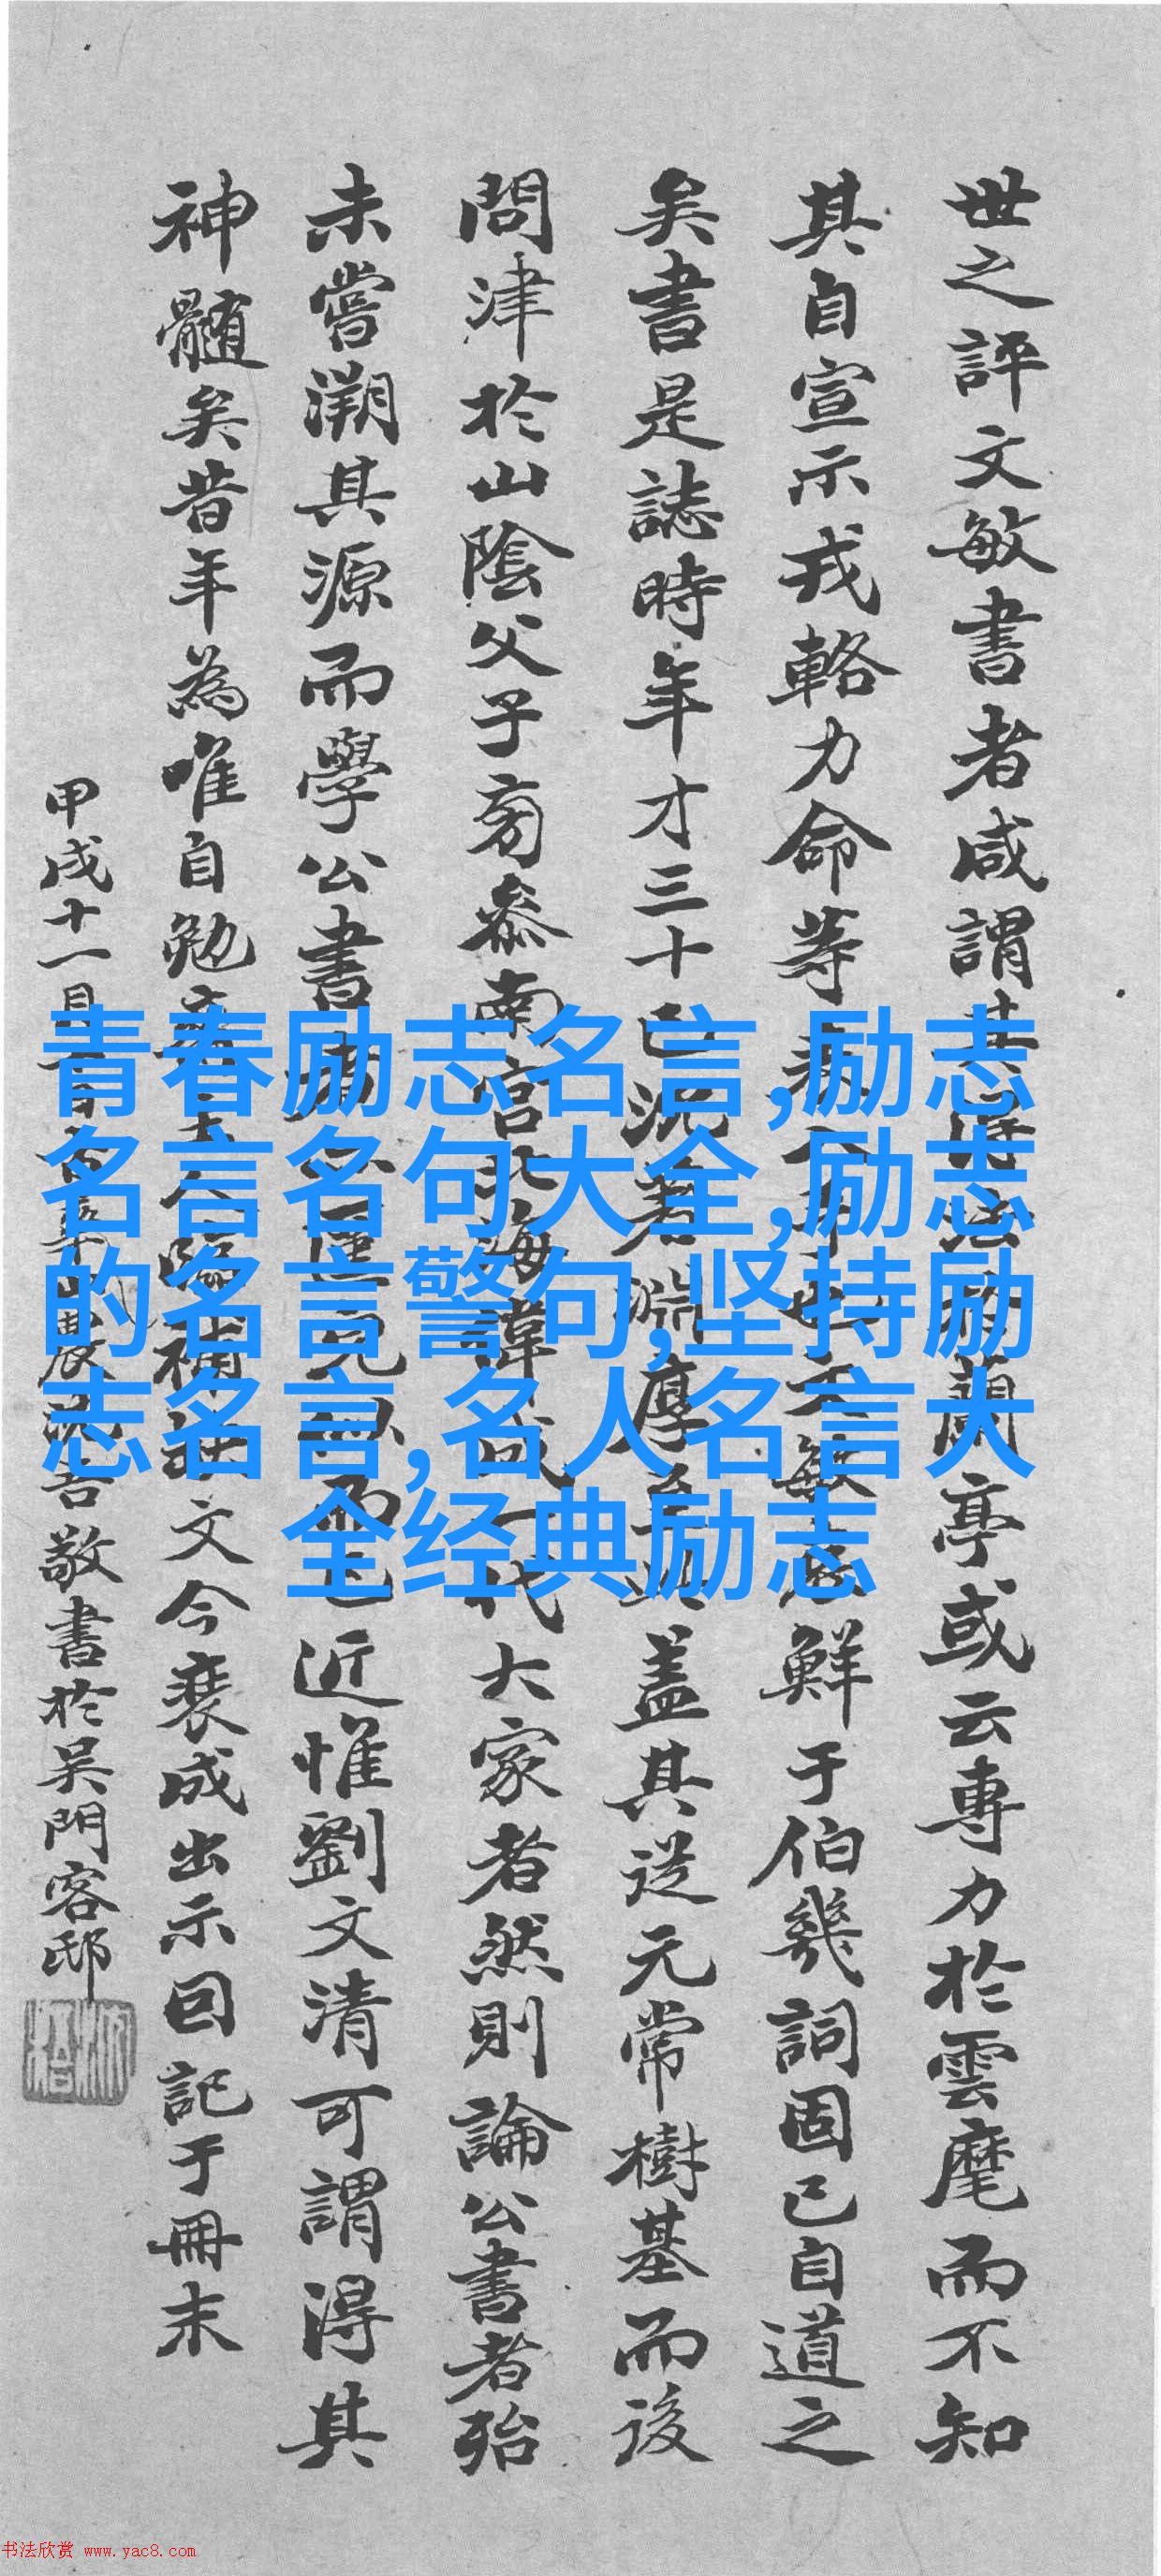 世之評文敏書者咸謂其得法於蘭亭或云專力於雲麾而不知
其自宣示戎輅力命等表鮮于伯幾詞固已自道之
矣書是誌時年才三十已沉著淵厚至此蓋其從元常樹基而後
問津於山陰父子旁叅南宮北海一代大家者然則論公書者殆
未嘗溯其源而學公書者而已近惟劉文清可謂得其
神髓矣昔年為唯自勉齋主人臨補缺文今裝成出示囙記于冊末
甲戌十一月敬書於吳門客邸
青春励志名言,励志
名言名句大全,励志
的名言警句,坚持励
志名言,名人名言大
全经典励志
书法欣赏 www.yac8.com